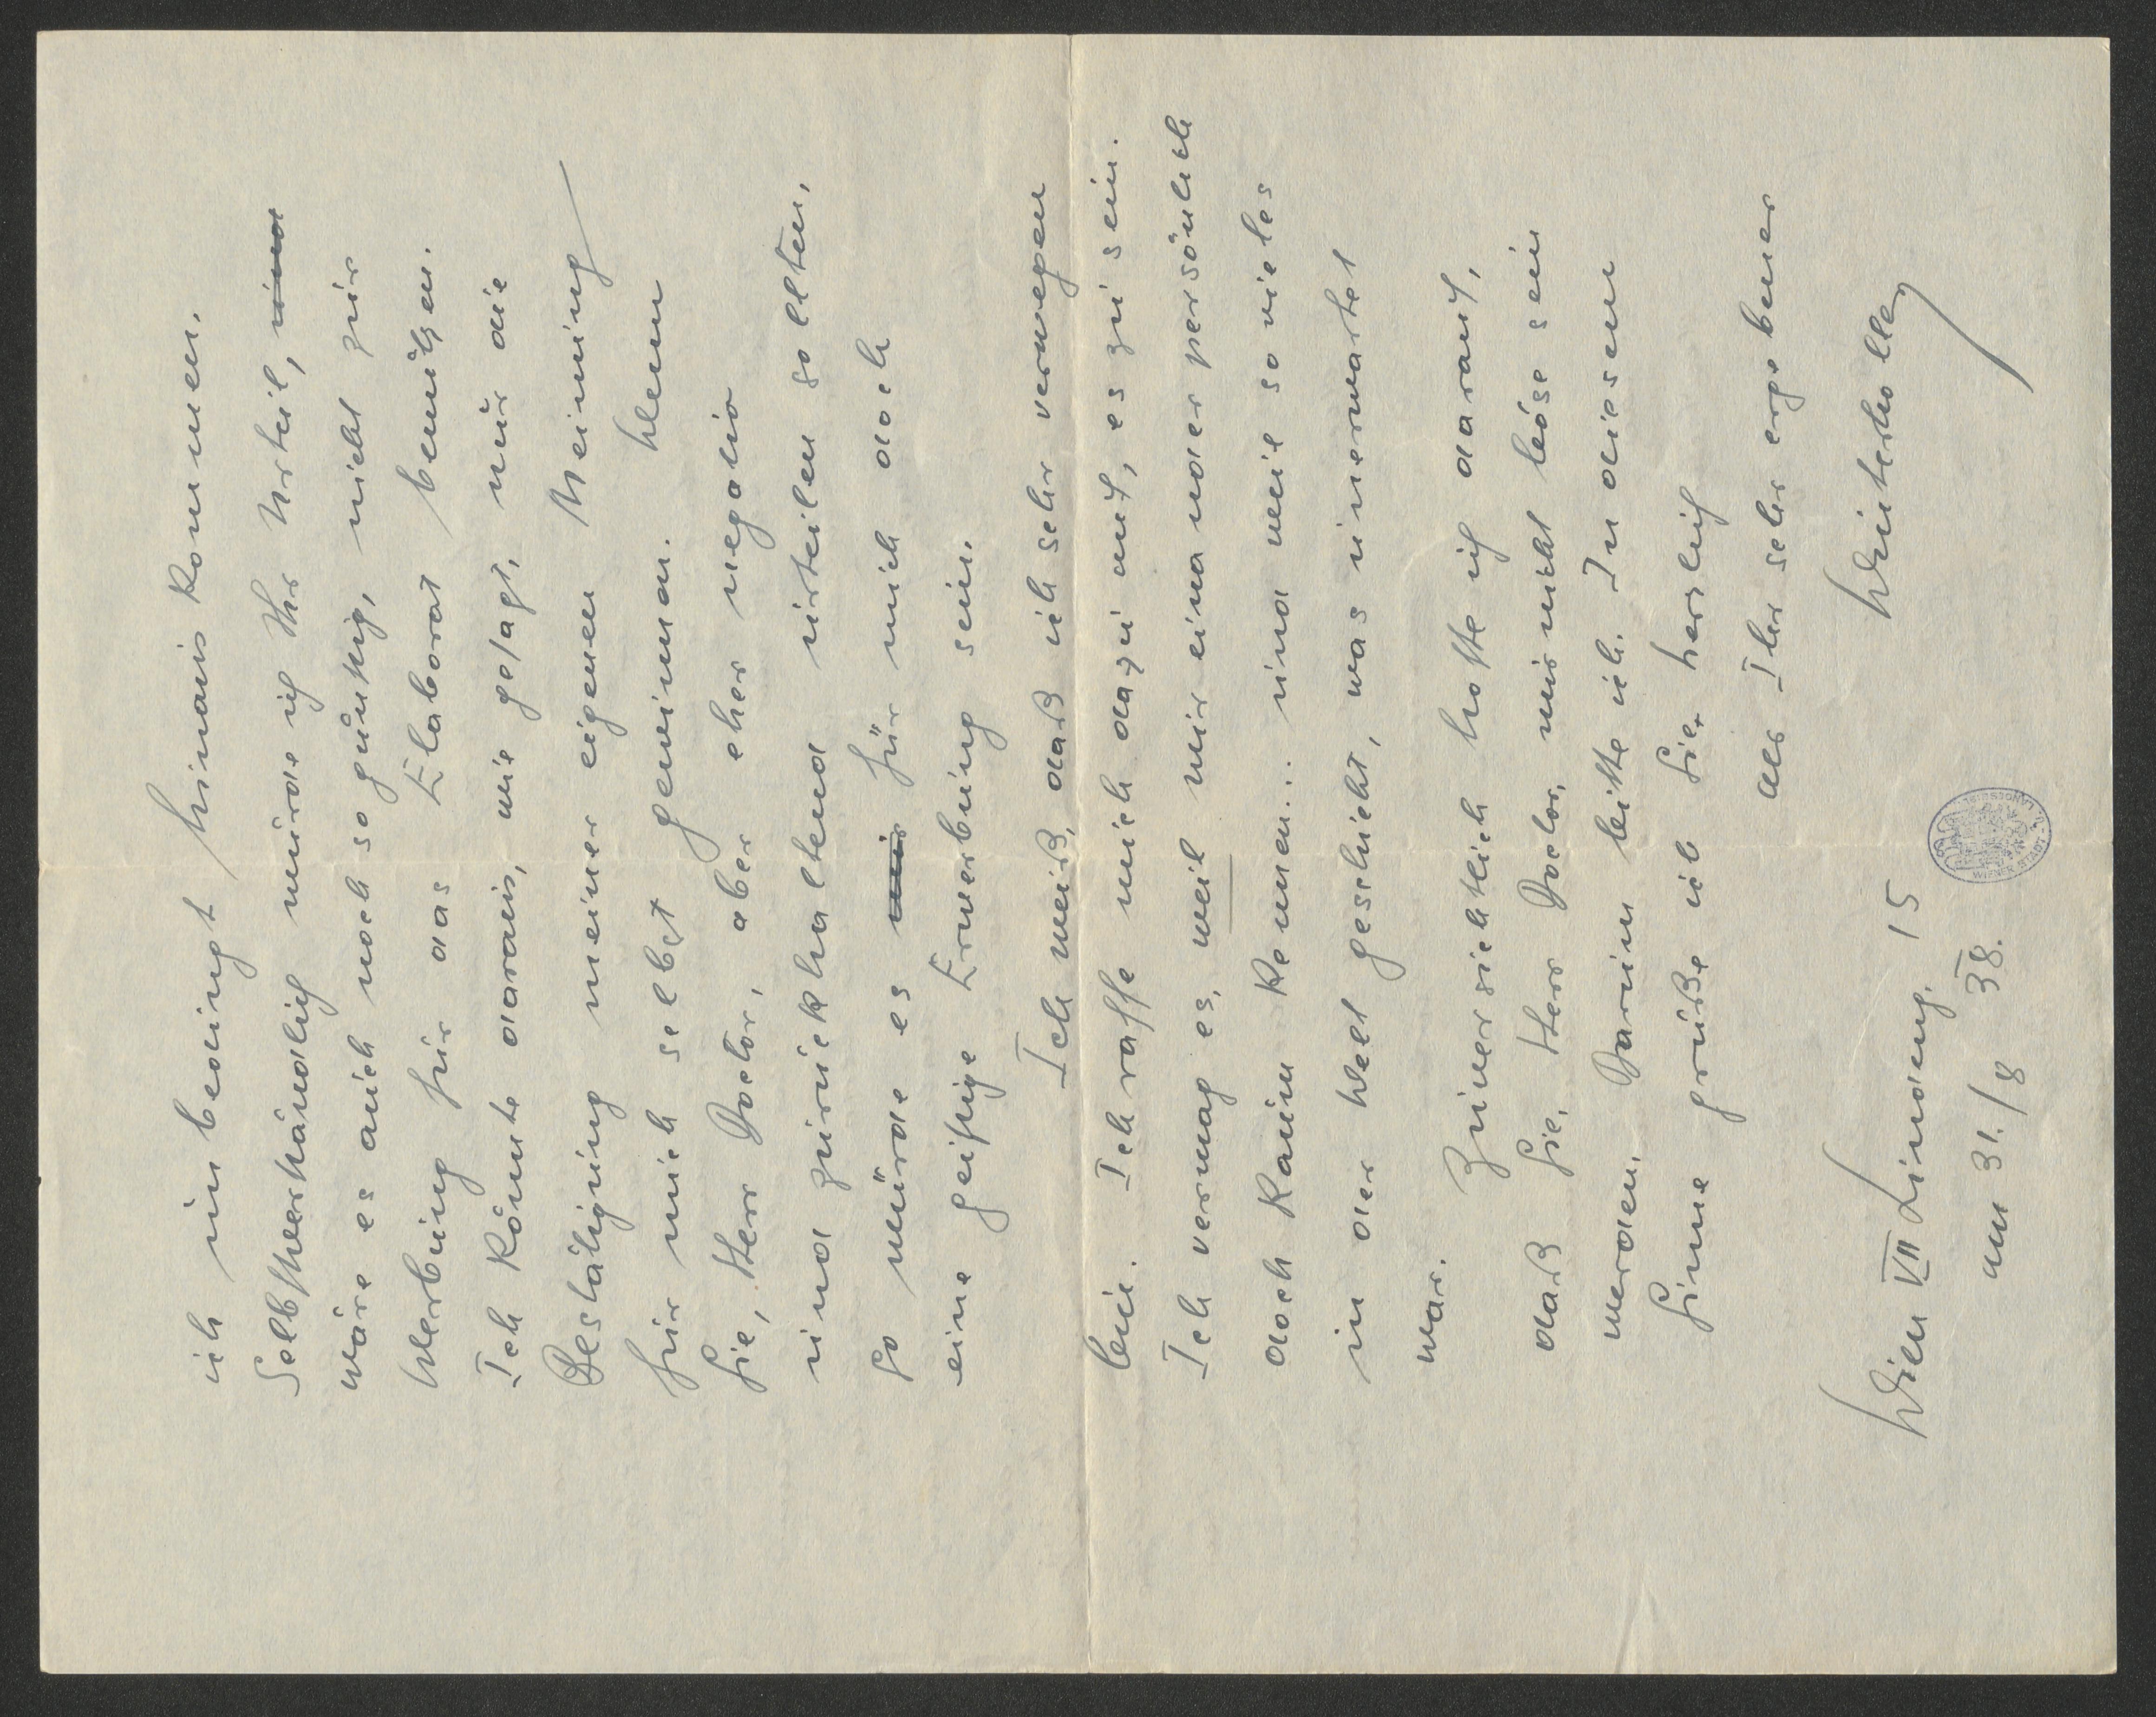 ich unbedingt hinauskommen.
Selbstverständlich würde ich Ihr Urteil, und
wäre es auch noch so günstig, nicht zur
Werbung für das Elaborat benützen.
Ich könnte daraus, wie gesagt, nur die
Bestätigung meiner eigenen Meinung
für mich selbst gewinnen. Wenn
Sie, Herr Doctor, aber eher negativ
und zurückhaltend urteilen sollten,
so würde es mir für mich doch
eine geistige Erwerbung sein.
Ich weiß, daß ich sehr verwegen
bin. Ich raffe mich dazu auf, es zu sein.
Ich vermag es, weil wir einander persönlich
doch kaum kennen... und weil so vieles
in der Welt geschieht, was unerwartet
war.
Zuversichtlich hoffe ich darauf,
daß Sie, Herr Doctor, mir nicht böse sein
werden. Darum bitte ich. In diesem
Sinne grüße ich Sie herzlich
als Ihr sehr ergebener
Winterholler
Wien VII Lindeng. 15
am 31./8 38.